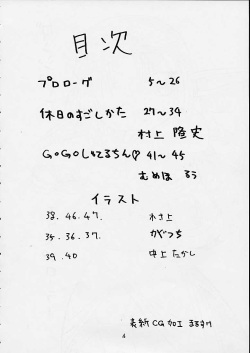 目次
プロローグ 5〜26
休日のすごしかた 27〜34
村上 隆史
GoGoしいてるちん♡ 41〜45
むめほ るう
イラスト
38.46.47. 木さ上
35.36.37. かがつち
39.40 中上たかし
表紙CG加工 まるすけ
4